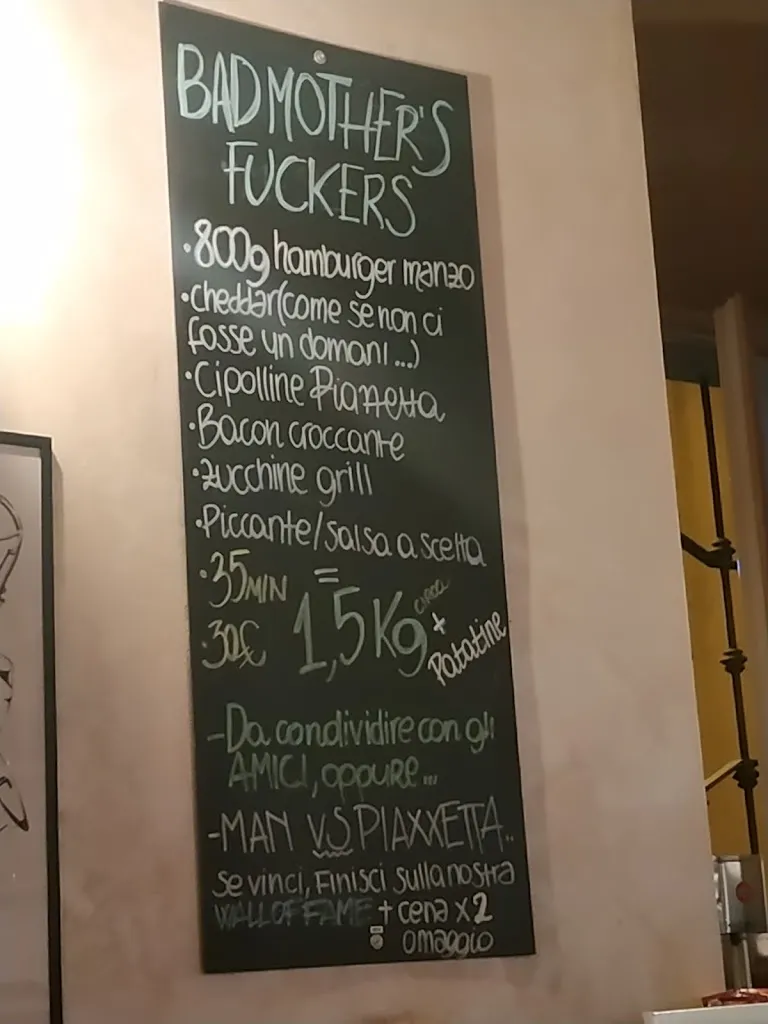 BAD MOTHER'S
FUCKERS
·800g hamburger manzo
·cheddar(come se non ci
fosse un domani...)
·Cipolline Piazzetta
·Bacon croccante
·zucchine grill
·Piccante/salsa a scelta
·35MIN =
·30€ 1,5Kg circa + Patatine
-Da condividire con gli
AMICI, oppure...
-MAN VS PIAXXETTA..
se vinci, Finisci sulla nostra
WALL OF FAME + cena x2
omaggio